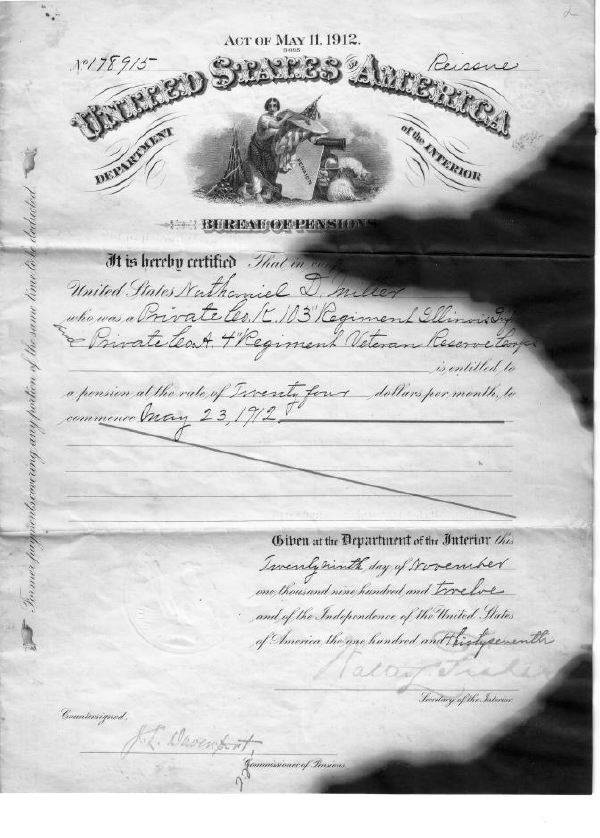 ACT OF MAY 11, 1912.
3-085
No 178915
Reissue
UNITED STATES OF AMERICA
DEPARTMENT
of the INTERIOR
BUREAU OF PENSIONS
It is hereby certified That in conf
United States Nathaniel D. Miller
who was a Private Co. K. 103" Regiment Illinois Inf
and Private Co. A. 4" Regiment Veteran Reserve Corps
is entitled to
a pension at the rate of Twenty four dollars per month, to
commence May 23, 1912.
Former payments covering any portion of the same time to be deducted.
Given at the Department of the Interior this
Twenty ninth day of November
one thousand nine hundred and twelve
and of the Independence of the United States
of America the one hundred and thirty seventh
Secretary of the Interior.
Countersigned,
J. L. Davenport,
Commissioner of Pensions